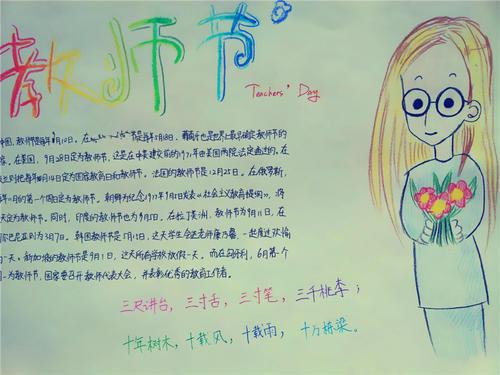 教师节
Teachers' Day
中国，教师节是每年9月10日。在节是每年5月18日，葡萄牙也是世界上最早确定教师节的
家，在美国，9月28日定为教师节，这是在中美建交后的1971年由美国两院法定通过的。在
则把每年10月14日定为国家教育日和教师节。法国的教师节是12月25日。在俄罗斯，
年10月的第一个周日定为教师节。朝鲜为纪念1977年9月5日发表《社会主义教育提纲》，将
天定为教师节。同时，印度的教师节也为9月5日。在拉丁美洲，教师节为9月11日，在
尼亚则为3月7日。韩国教师节是5月15日，这天学生会送老师康乃馨，一起度过欢愉
一天。新加坡的教师节是9月1日，这天所有学校放假一天。而在匈牙利，6月第一个
日为教师节，国家要召开教师代表大会，并表彰优秀的教育工作者。
三尺讲台，三寸舌，三寸笔，三千桃李；
十年树木，十载风，十载雨，十万栋梁。